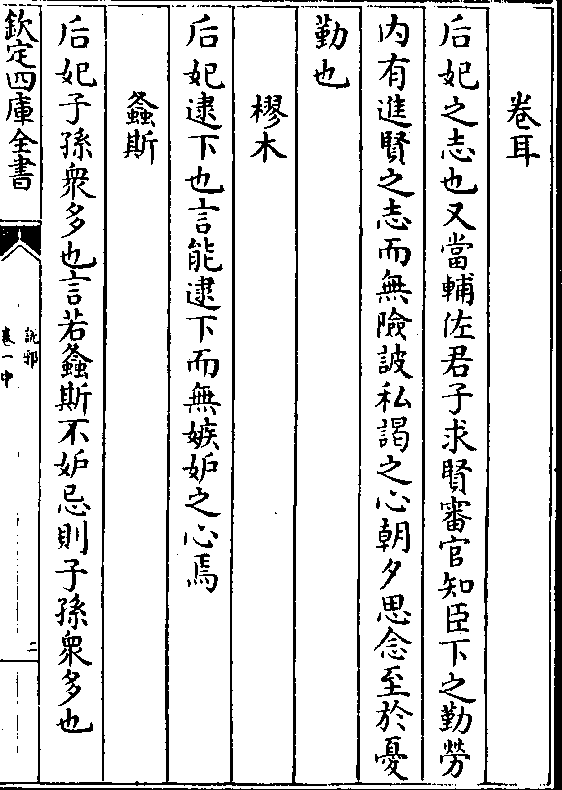 卷耳
后妃之志也又當輔佐君子求賢審官知臣下之勤勞
内有進賢之志而無險詖私謁之心朝夕思念至於憂
勤也
樛木
后妃逮下也言能逮下而無嫉妒之心焉
螽斯
后妃子孫衆多也言若螽斯不妒忌則子孫衆多也
欽定四庫全書
說郛
卷一中
二